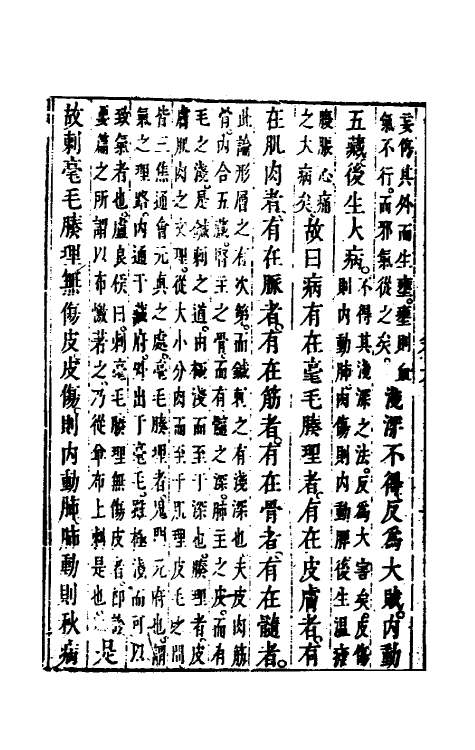 妄傷其外而生壅。壅則血
氣不行。而邪氣從之矣。
淺深不得。反爲大賊。內動
五藏。後生大病。
不得其淺深之法。反爲大害矣。皮傷
則內動肺。肉傷則內動脾。後生溫瘧
腹脹心痛
之大病矣
故曰病有在毫毛腠理者。有在皮膚者。有
在肌肉者。有在脈者。有在筋者。有在骨者。有在髓者。
此論形層之有次第。而鍼刺之有淺深也。夫皮肉筋
骨。內合五藏。腎主之骨。而有髓之深。肺主之皮。而有
毛之淺。是鍼刺之道。由極淺而至于深也。腠理者。皮
膚肌肉之文理。從大小分肉而至于肌理皮毛之間
皆三焦通會元真之處。毫毛腠理者。鬼門元府也。謂
氣之理路。內通于藏府。外出于毫毛。雖極淺而可以
致氣者也。盧良侯曰。刺毫毛腠理無傷皮者。即診
要篇之所謂以布憿著之。乃從單布上刺是也。
是
故刺毫毛腠理無傷皮。皮傷則內動肺。肺動則秋病